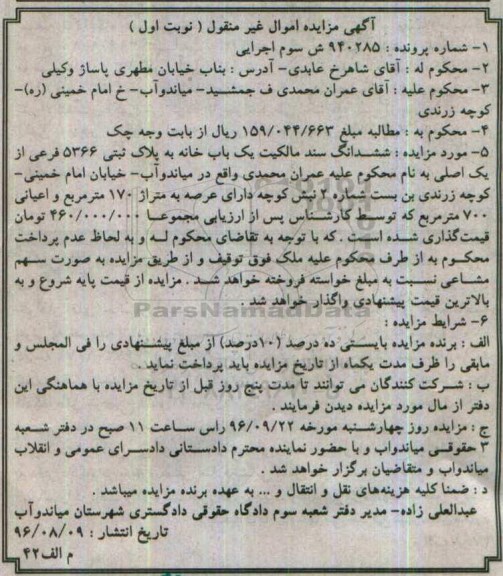 آگهی مزایده اموال غیر منقول ( نوبت اول )
۱- شماره پرونده : ۹۴۰۲۸۵ ش سوم اجرایی
۲- محکوم له : آقای شاهرخ عابدی- آدرس : بناب خیابان مطهری پاساژ وکیلی
۳- محکوم علیه : آقای عمران محمدی ف جمشید- میاندوآب- خ امام خمینی (ره)-
کوچه زرندی
۴- محکوم به : مطالبه مبلغ ۱۵۹/۰۴۴/۶۶۳ ریال از بابت وجه چک
۵- مورد مزایده : ششدانگ سند مالکیت یک باب خانه به پلاک ثبتی ۵۳۶۶ فرعی از
یک اصلی به نام محکوم علیه عمران محمدی واقع در میاندوآب- خیابان امام خمینی-
کوچه زرندی بن بست شماره ۲ نبش کوچه دارای عرصه به متراژ ۱۷۰ مترمربع و اعیانی
۷۰۰ مترمربع که توسط کارشناس پس از ارزیابی مجموعا ۴۶۰/۰۰۰/۰۰۰ تومان
قیمت‌گذاری شده است . که با توجه به تقاضای محکوم له و به لحاظ عدم پرداخت
محکوم به از طرف محکوم علیه ملک فوق توقیف و از طریق مزایده به صورت سهم
مشاعی نسبت به مبلغ خواسته فروخته خواهد شد . مزایده از قیمت پایه شروع و به
بالاترین قیمت پیشنهادی واگذار خواهد شد .
ParsNamadData
۶- شرایط مزایده :
الف : برنده مزایده بایستی ده درصد (۱۰درصد) از مبلغ پیشنهادی را فی المجلس و
مابقی را ظرف مدت یکماه از تاریخ مزایده باید پرداخت نماید .
ب : شرکت کنندگان می توانند تا مدت پنج روز قبل از تاریخ مزایده با هماهنگی این
دفتر از مال مورد مزایده دیدن فرمایند .
ج : مزایده روز چهارشنبه مورخه ۹۶/۰۹/۲۲ راس ساعت ۱۱ صبح در دفتر شعبه
۳ حقوقی میاندواب و با حضور نماینده محترم دادستانی دادسرای عمومی و انقلاب
میاندواب و متقاضیان برگزار خواهد شد .
د : ضمنا کلیه هزینه‌های نقل و انتقال و ... به عهده برنده مزایده میباشد .
عبدالعلی زاده- مدیر دفتر شعبه سوم دادگاه حقوقی دادگستری شهرستان میاندوآب
تاریخ انتشار : ۹۶/۰۸/۰۹
م الف۴۲